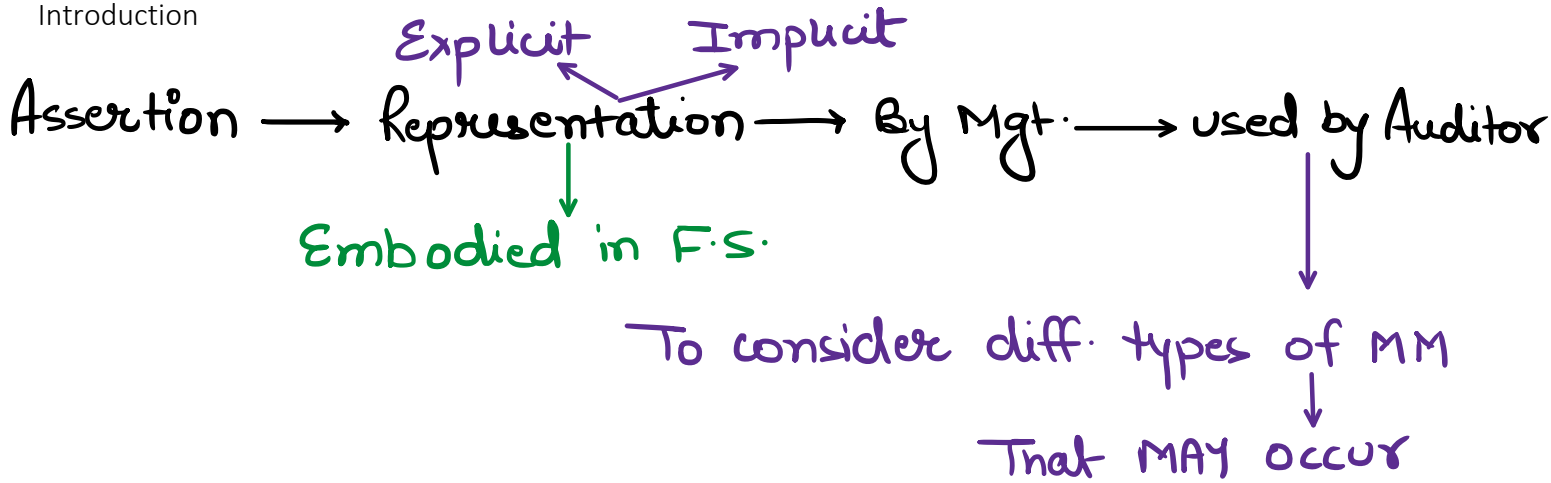 Introduction
Explicit Implicit
Assertion → Representation → By Mgt. → used by Auditor
Embodied in F.S.
To consider diff. types of MM
That MAY occur